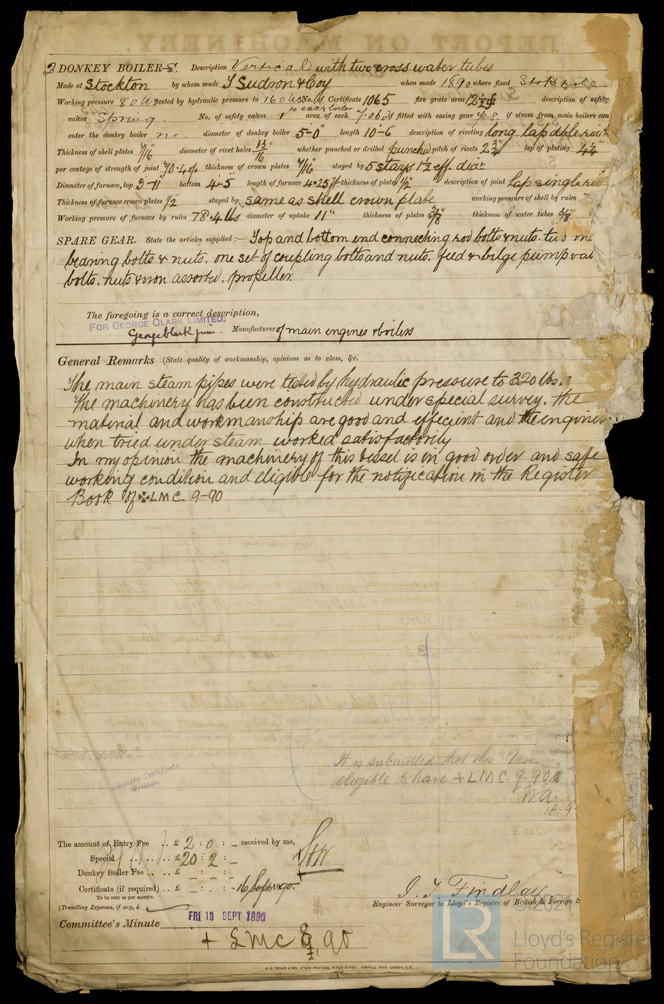 2 DONKEY BOILER-S. Description Vertical with two cross water tubes
Made at Stockton by whom made T Sudron & Coy when made 1890 where fixed Stokehole
Working pressure 80 lbs tested by hydraulic pressure to 160 lbs No. of Certificate 1065 fire grate area description of safety
valves Spring No. of safety valves 1 to each boiler area of each 7.06 if fitted with easing gear yes if steam from main boilers can
enter the donkey boiler no diameter of donkey boiler 5-0" length 10-6 description of riveting long. lap dble riv
Thickness of shell plates 7/16 diameter of rivet holes 13/16 whether punched or drilled punched pitch of rivets 2 3/4 lap of plating 4 1/4"
per centage of strength of joint 70.4% thickness of crown plates 7/16 stayed by 5 stays 1 1/2 eff. dia
Diameter of furnace, top 3-11 bottom 4-5" length of furnace 4.25 ft thickness of plates 1/2" description of joint lap single riv
Thickness of furnace crown plates 1/2 stayed by same as shell crown plate working pressure of shell by rules
Working pressure of furnace by rules 78.4 lbs diameter of uptake 11" thickness of plates 3/8" thickness of water tubes 3/8"
SPARE GEAR. State the articles supplied:— Top and bottom end connecting rod bolts & nuts. two main
bearing bolts & nuts. one set of coupling bolts and nuts. feed & bilge pump val
bolts. nuts & iron assorted. propeller.
The foregoing is a correct description,
FOR GEORGE CLARK LIMITED.
George Clark jun. Manufacturer of main engines & boilers
General Remarks (State quality of workmanship, opinions as to class, &c.
The main steam pipes were tested by hydraulic pressure to 320 lbs.
The machinery has been constructed under special survey. The
material and workmanship are good and efficient and the engines
when tried under steam worked satisfactorily
In my opinion the machinery of this vessel is in good order and safe
working condition and eligible for the notification in the Register
Book of ✠ LMC 9-90
It is submitted that this Ves.
eligible to have + LMC 9.90
18-9
Machinery Certificate
Written.
The amount of Entry Fee .. £ 2 : 0 : - received by me,
Special .. .. .. £ 20 : 2 : -
Donkey Boiler Fee .. .. £
Certificate (if required) .. £ - : - : - 16 Sep 1890
To be sent as per margin.
(Travelling Expenses, if any, £
J. T. Findlay
Engineer Surveyor to Lloyd's Register of British & Foreign S
Committee's Minute FRI 19 SEPT 1890
+ LMC 9,90
© 2021
LR
Lloyd's Register
Foundation